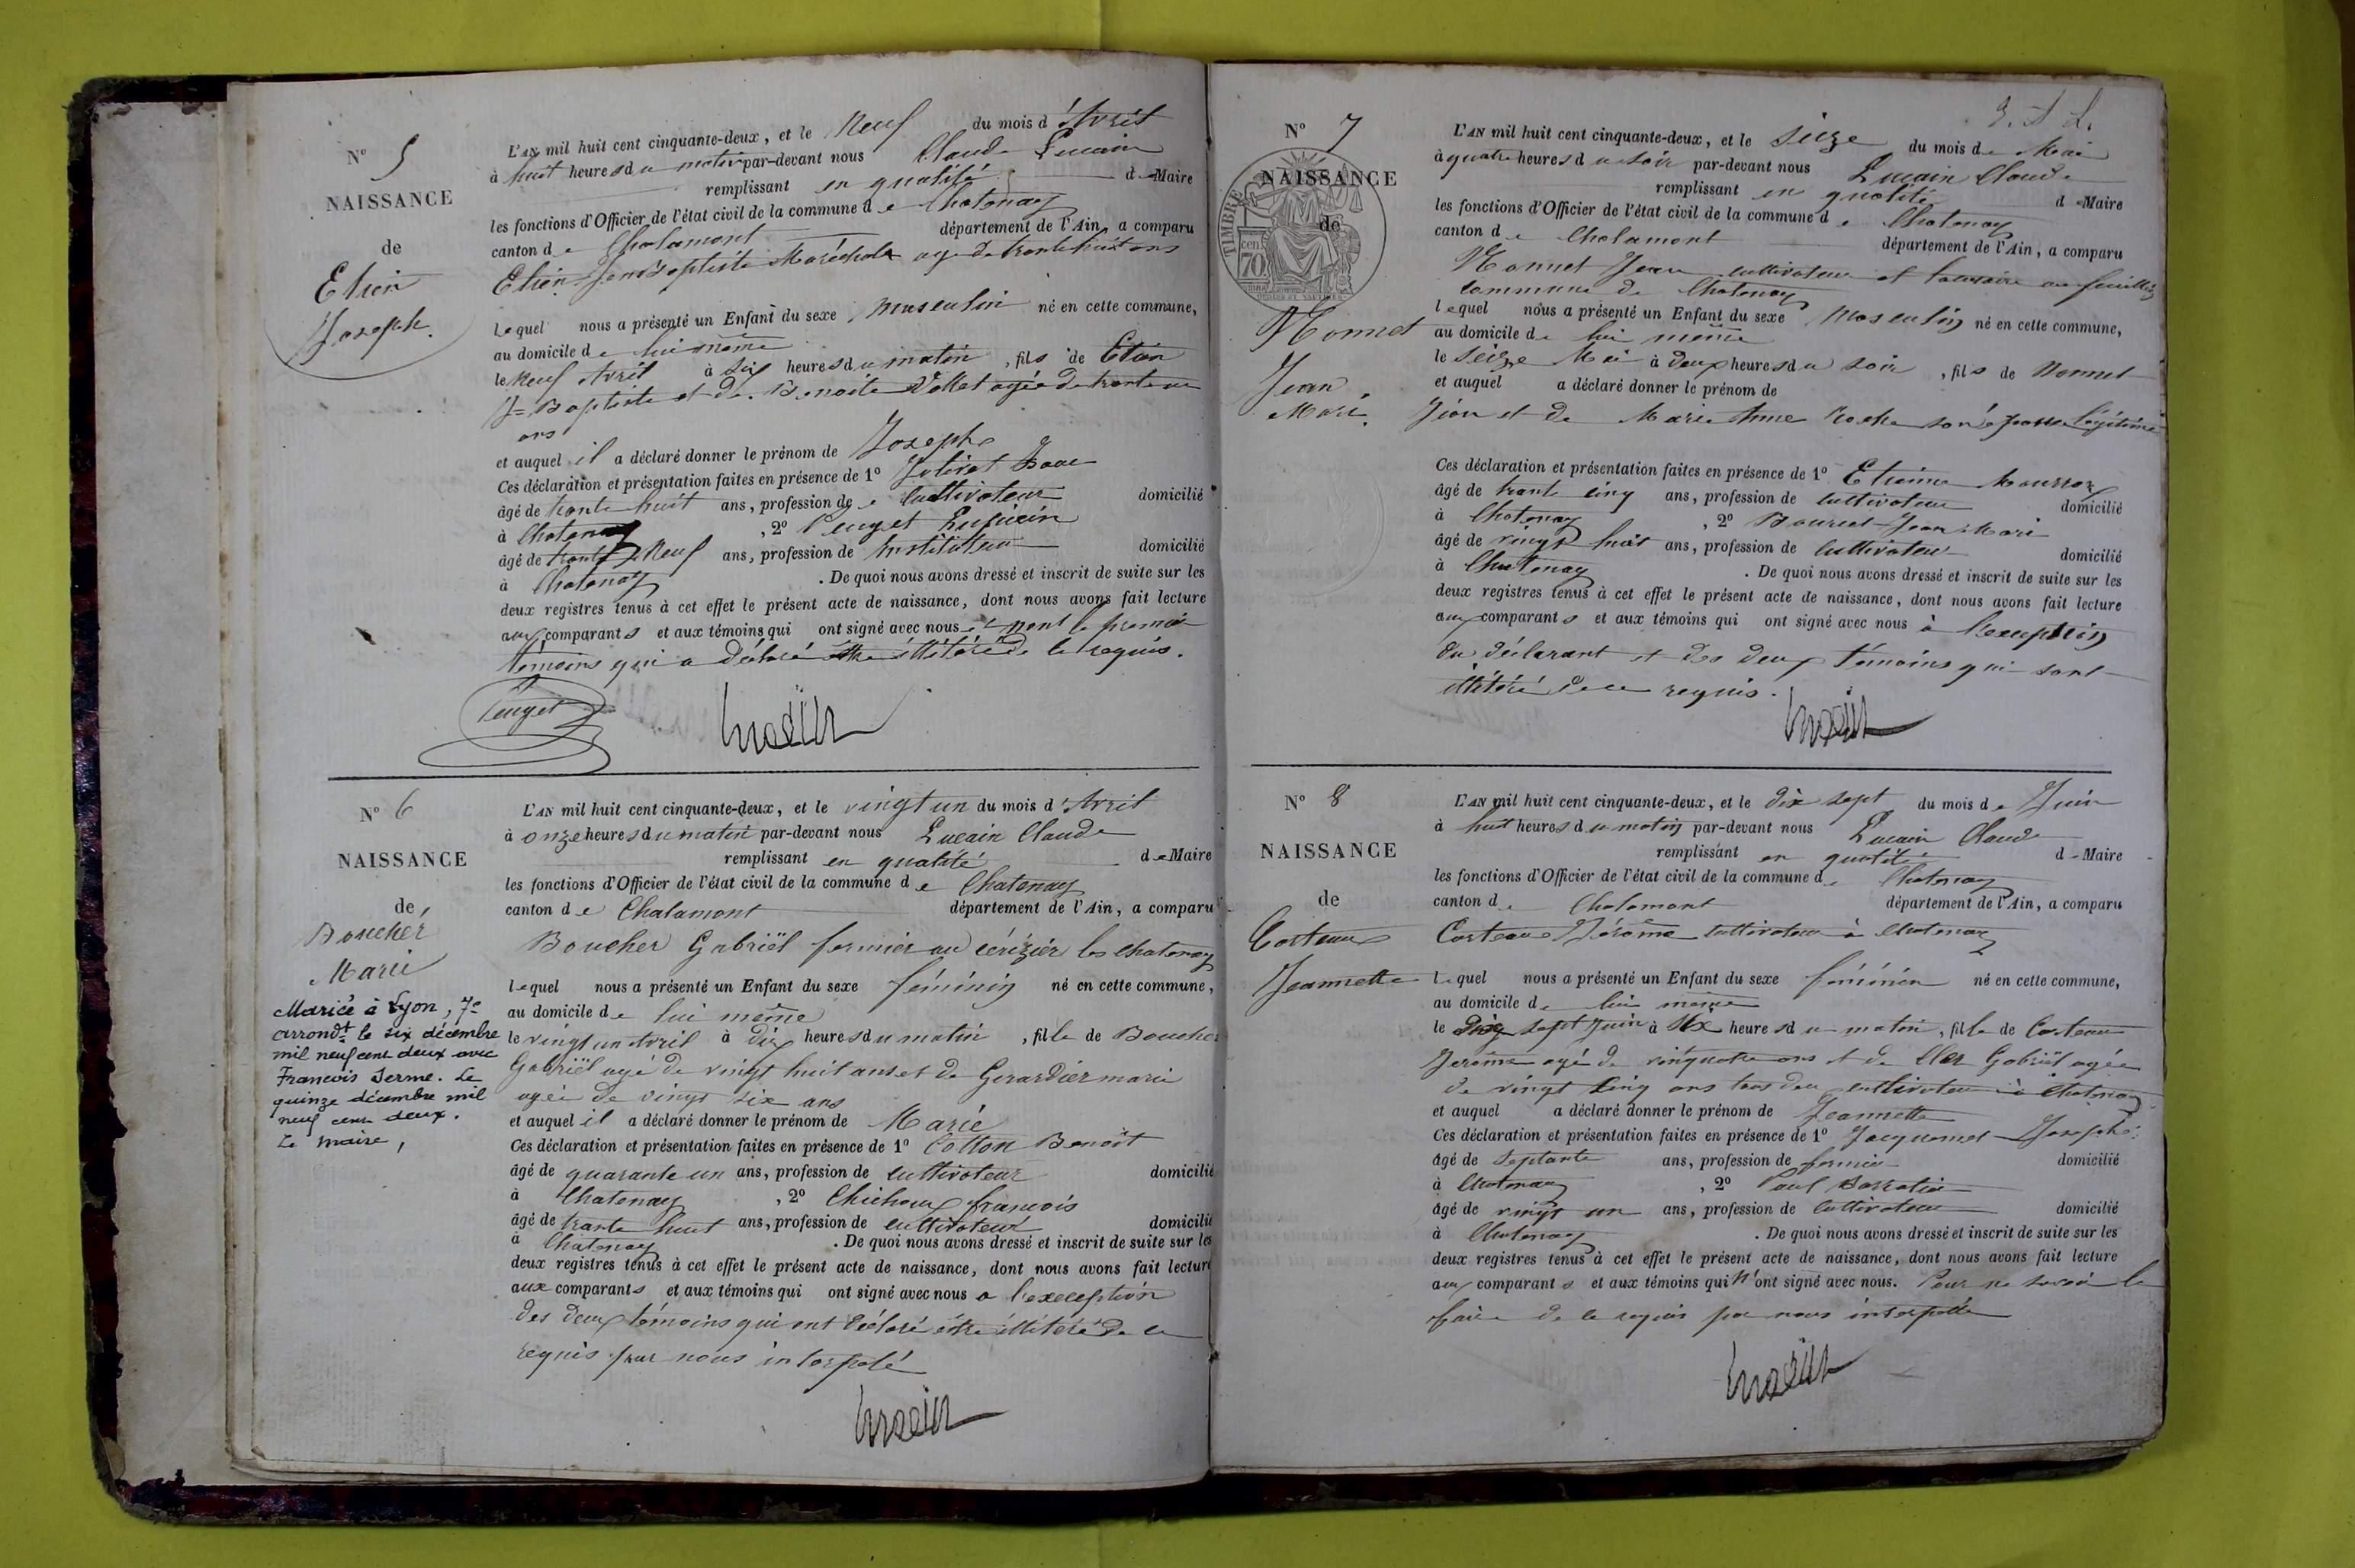 N° 5
NAISSANCE
de
Etien
Joseph.
L'AN mil huit cent cinquante-deux, et le Neuf du mois d'Avril
à huit heures du matin par-devant nous Claude Lucain
remplissant en qualité de Maire
les fonctions d'Officier de l'état civil de la commune de Chatenay
canton de Chalamont département de l'Ain, a comparu
Etien Jean Baptiste Maréchal agé de trente huit ans
lequel nous a présenté un Enfant du sexe Masculin né en cette commune,
au domicile de lui même
le Neuf Avril à six heures du matin, fils de Etien
J= Baptiste et de Benoite Vollat agée de trente un
ans
et auquel il a déclaré donner le prénom de Joseph
Ces déclaration et présentation faites en présence de 1° Jolivet
âgé de trente huit ans, profession de cultivateur domicilié
à Chatenay, 2° Peuget
âgé de trente Neuf ans, profession de Instituteur domicilié
à Chatenay. De quoi nous avons dressé et inscrit de suite sur les
deux registres tenus à cet effet le présent acte de naissance, dont nous avons fait lecture
aux comparants et aux témoins qui ont signé avec nous et non le premier
témoins qui a déclaré être illitéré de le requis.
Peuget
Lucain
N° 6
NAISSANCE
de
Boucher
Marie
Mariée à Lyon, 7e
arrondt le six décembre
mil neuf cent deux avec
Francois Serme. Le
quinze décembre mil
neuf cent deux.
Le maire,
L'AN mil huit cent cinquante-deux, et le vingt un du mois d'Avril
à onze heures du matin par-devant nous Lucain Claude
remplissant en qualité de Maire
les fonctions d'Officier de l'état civil de la commune de Chatenay
canton de Chalamont département de l'Ain, a comparu
Boucher Gabriël fermier au cérizier les Chatenay
lequel nous a présenté un Enfant du sexe féminin né en cette commune,
au domicile de lui même
le vingt un Avril à dix heures du matin, fille de Boucher
Gabriël agé de vingt huit ans et de Gerardier marie
agée de vingt six ans
et auquel il a déclaré donner le prénom de Marie
Ces déclaration et présentation faites en présence de 1° Cotton Benoit
âgé de quarante un ans, profession de cultivateur domicilié
à Chatenay, 2° Chichoux francois
âgé de trante huit ans, profession de cultivateur domicilié
à Chatenay. De quoi nous avons dressé et inscrit de suite sur les
deux registres tenus à cet effet le présent acte de naissance, dont nous avons fait lecture
aux comparants et aux témoins qui ont signé avec nous a l'exeception
des deux témoins qui ont déclaré être illitéré de ce
requis par nous interpolé
Lucain
N° 7
NAISSANCE
de
TIMBRE
cen
70
Monnet
Jean
Marie.
L'AN mil huit cent cinquante-deux, et le seize du mois de Mai
à quatre heures du soir par-devant nous Lucain Claude
remplissant en qualité de Maire
les fonctions d'Officier de l'état civil de la commune de Chatenay
canton de Chalamont département de l'Ain, a comparu
Monnet Jean cultivateur et locataire au
commune de Chatenay
lequel nous a présenté un Enfant du sexe Masculin né en cette commune,
au domicile de lui même
le seize Mai à deux heures du soir, fils de Monnet
et auquel a déclaré donner le prénom de
Jean et de Marie Anne Roche son épouse légitime
Ces déclaration et présentation faites en présence de 1° Etienne
âgé de trante cinq ans, profession de cultivateur domicilié
à Chatenay, 2° Bourcet Jean Marie
âgé de vingt huit ans, profession de cultivateur domicilié
à Chatenay. De quoi nous avons dressé et inscrit de suite sur les
deux registres tenus à cet effet le présent acte de naissance, dont nous avons fait lecture
aux comparants et aux témoins qui ont signé avec nous à l'exception
du déclarant et des deux témoins qui sont
illitéré de ce requis.
Lucain
N° 8
NAISSANCE
de
Corteaux
Jeannette
L'AN mil huit cent cinquante-deux, et le dix sept du mois de Juin
à huit heures du matin par-devant nous Lucain Claude
remplissant en qualité de Maire
les fonctions d'Officier de l'état civil de la commune de Chatenay
canton de Chalamont département de l'Ain, a comparu
Corteaux Jérôme cultivateur à Chatenay
lequel nous a présenté un Enfant du sexe féminin né en cette commune,
au domicile de lui même
le dix sept Juin à six heures du matin, fille de Corteaux
Jerôme agé de vingt quatre ans et de Gabriël agée
de vingt cinq ans tous deux cultivateur à Chatenay
et auquel a déclaré donner le prénom de Jeannette
Ces déclaration et présentation faites en présence de 1° Jacquemet Joseph
âgé de septante ans, profession de fermier domicilié
à Chatenay, 2° Paul
âgé de vingt un ans, profession de cultivateur domicilié
à Chatenay. De quoi nous avons dressé et inscrit de suite sur les
deux registres tenus à cet effet le présent acte de naissance, dont nous avons fait lecture
aux comparants et aux témoins qui n'ont signé avec nous. Pour ne savoir le
faire de ce requis par nous interpollé
Lucain